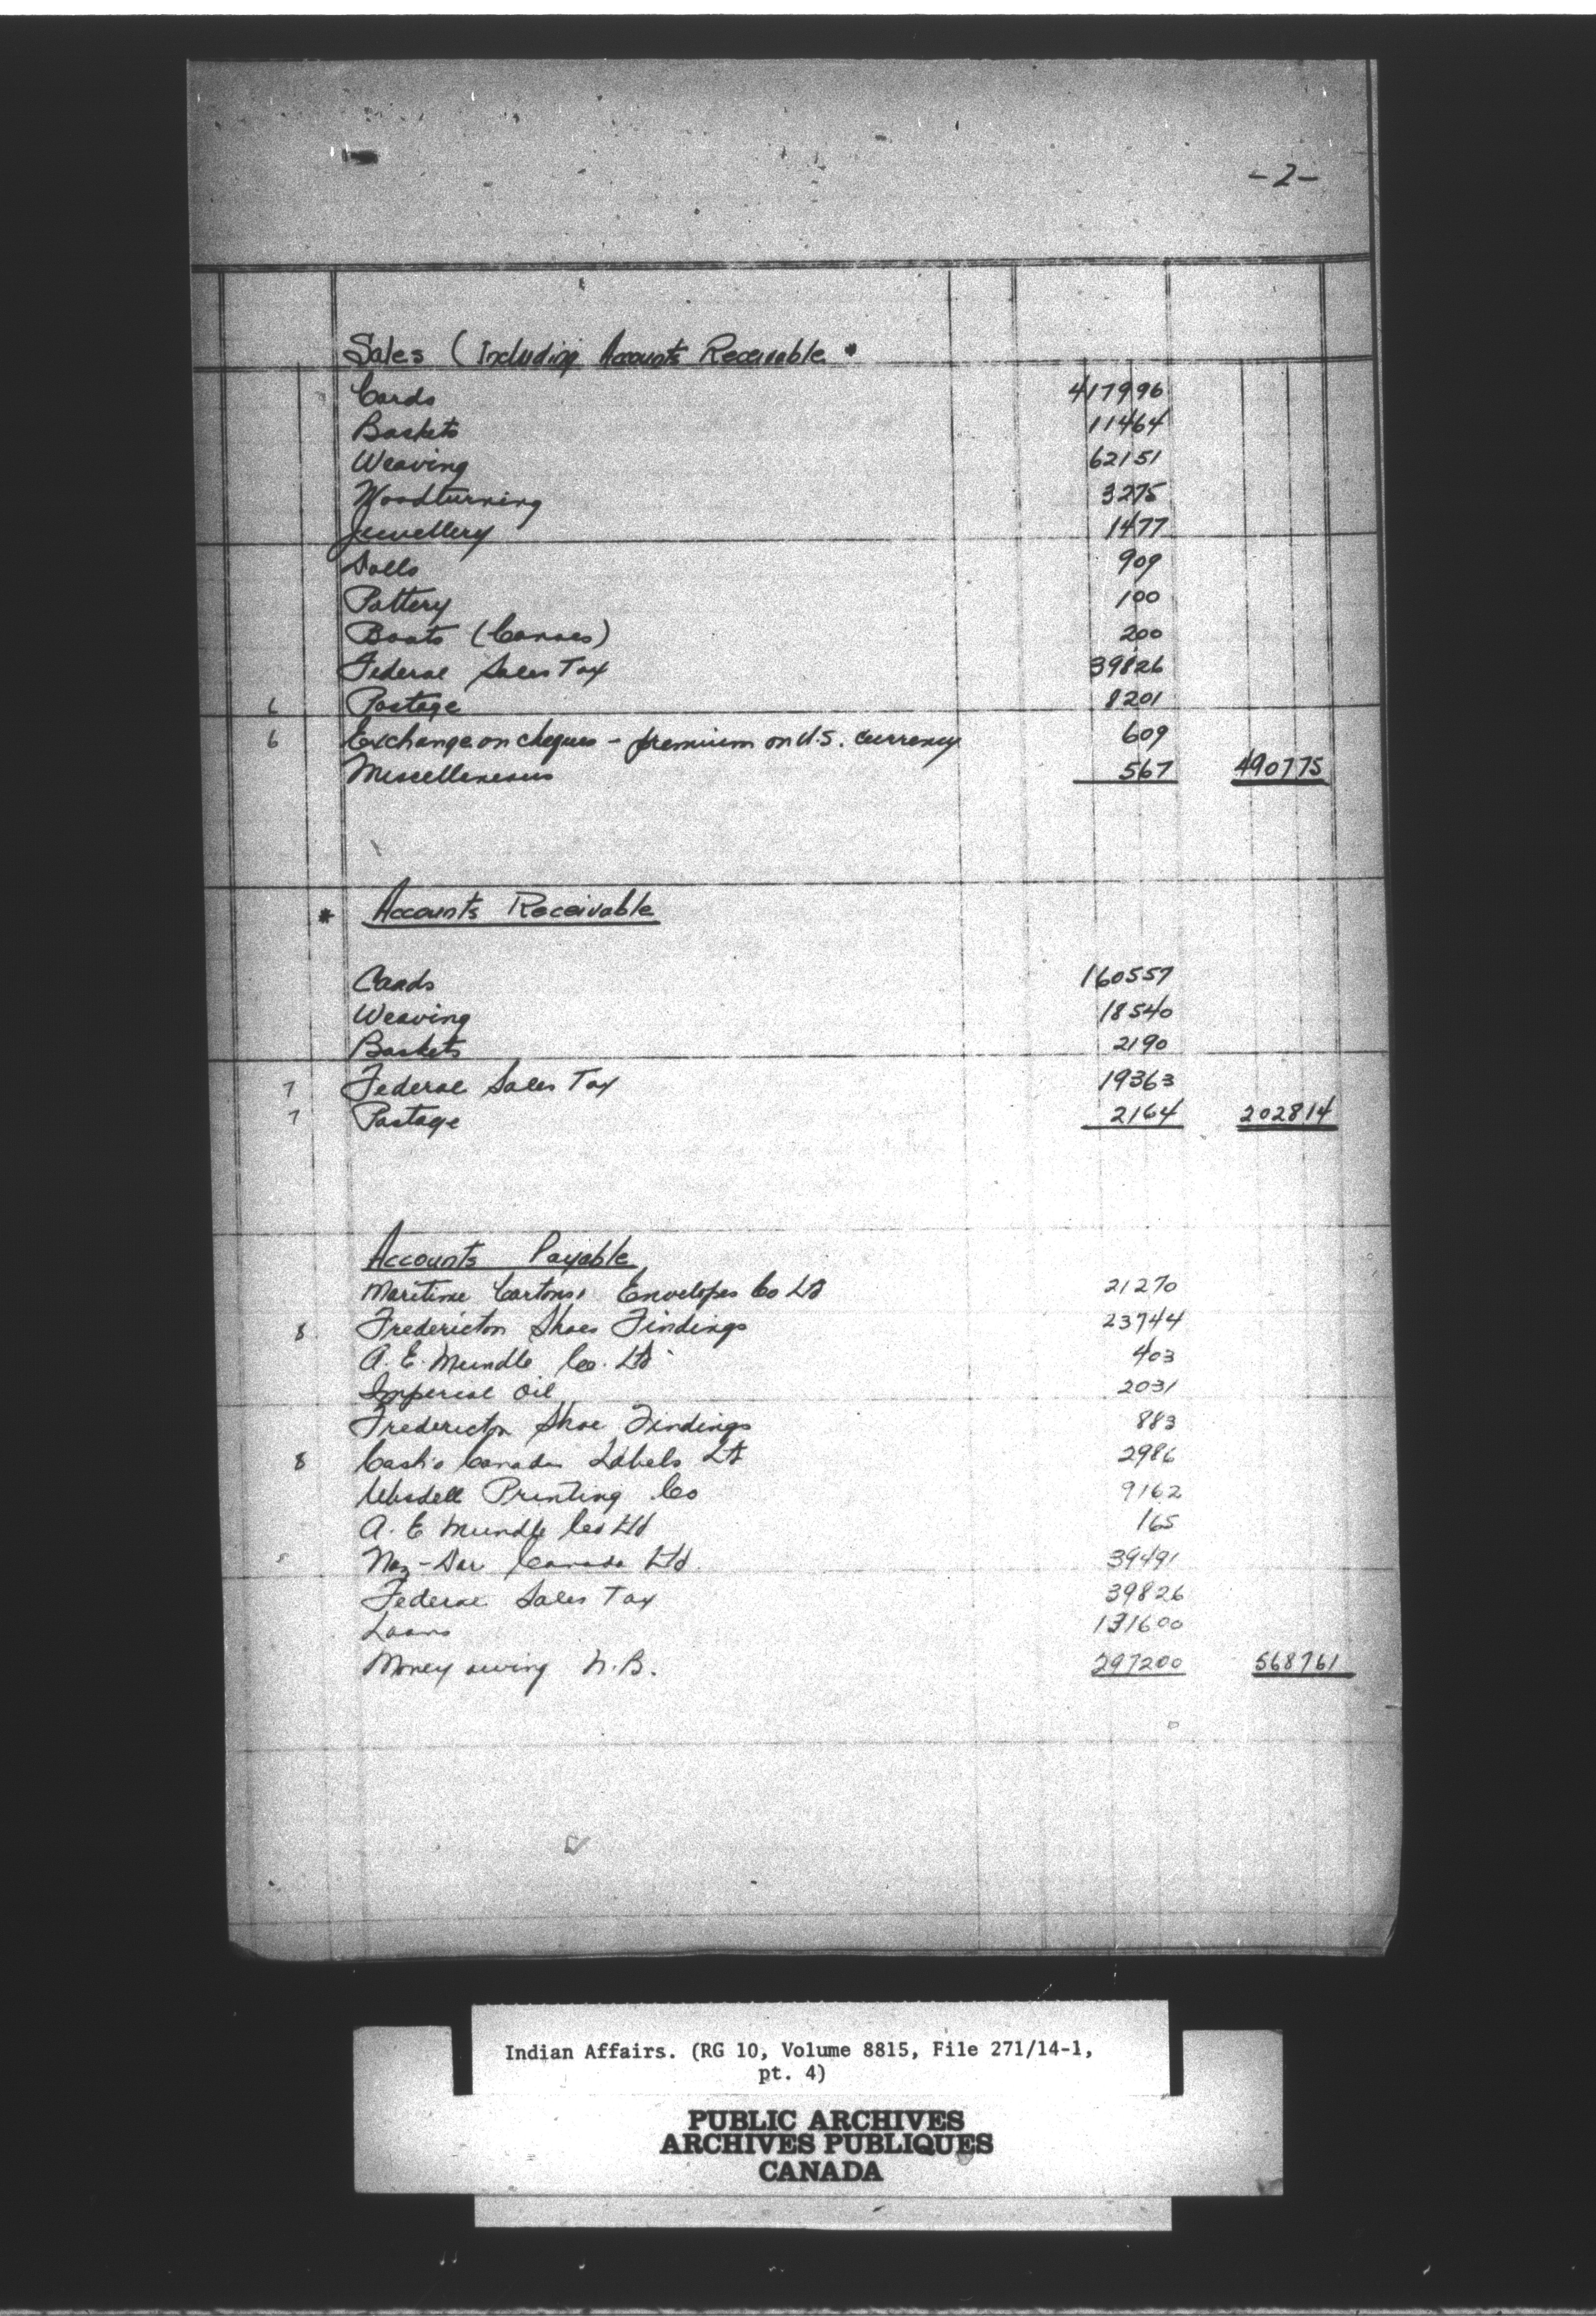 -2-
Sales (Including Accounts Receivable *
Cards 417996
Baskets 11464
Weaving 62151
Woodturning 3275
Jewellery 1477
Dolls 909
Pottery 100
Boats (Canoes) 200
Federal Sales Tax 39826
6 Postage 8201
6 Exchange on cheques - premium on U.S. currency 609
Miscellaneous 567 490775
* Accounts Receivable
Cards 160557
Weaving 18540
Baskets 2190
7 Federal Sales Tax 19363
7 Postage 2164 202814
Accounts Payable
Maritime Cartons, Envelopes Co Ltd 21270
8 Fredericton Shoes Findings 23744
A. E. Mundle Co. Ltd 403
Imperial Oil 2031
Fredericton Shoe Findings 883
8 Cash's Canada Labels Ltd 2986
Wisdell Printing Co 9162
A. E Mundle Co Ltd 165
Naz-Dar Canada Ltd. 39491
Federal Sales Tax 39826
Loans 131600
Money owing N.B. 297200 568761
Indian Affairs. (RG 10, Volume 8815, File 271/14-1,
pt. 4)
PUBLIC ARCHIVES
ARCHIVES PUBLIQUES
CANADA